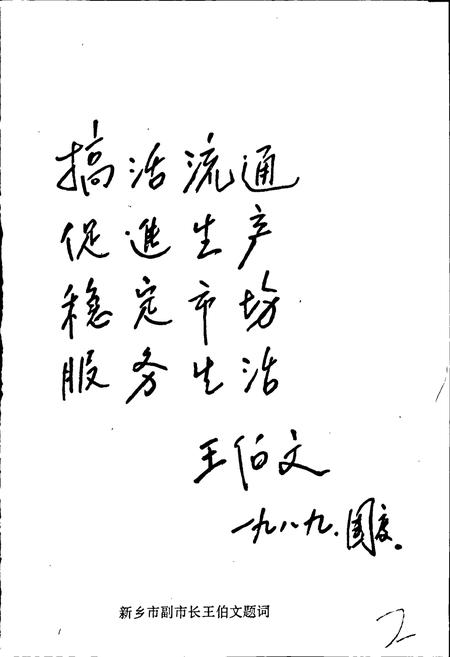 搞活流通
促進生产
稳定市场
服务生活
王伯文
一九八九.国庆.
新乡市副市长王伯文题词
2